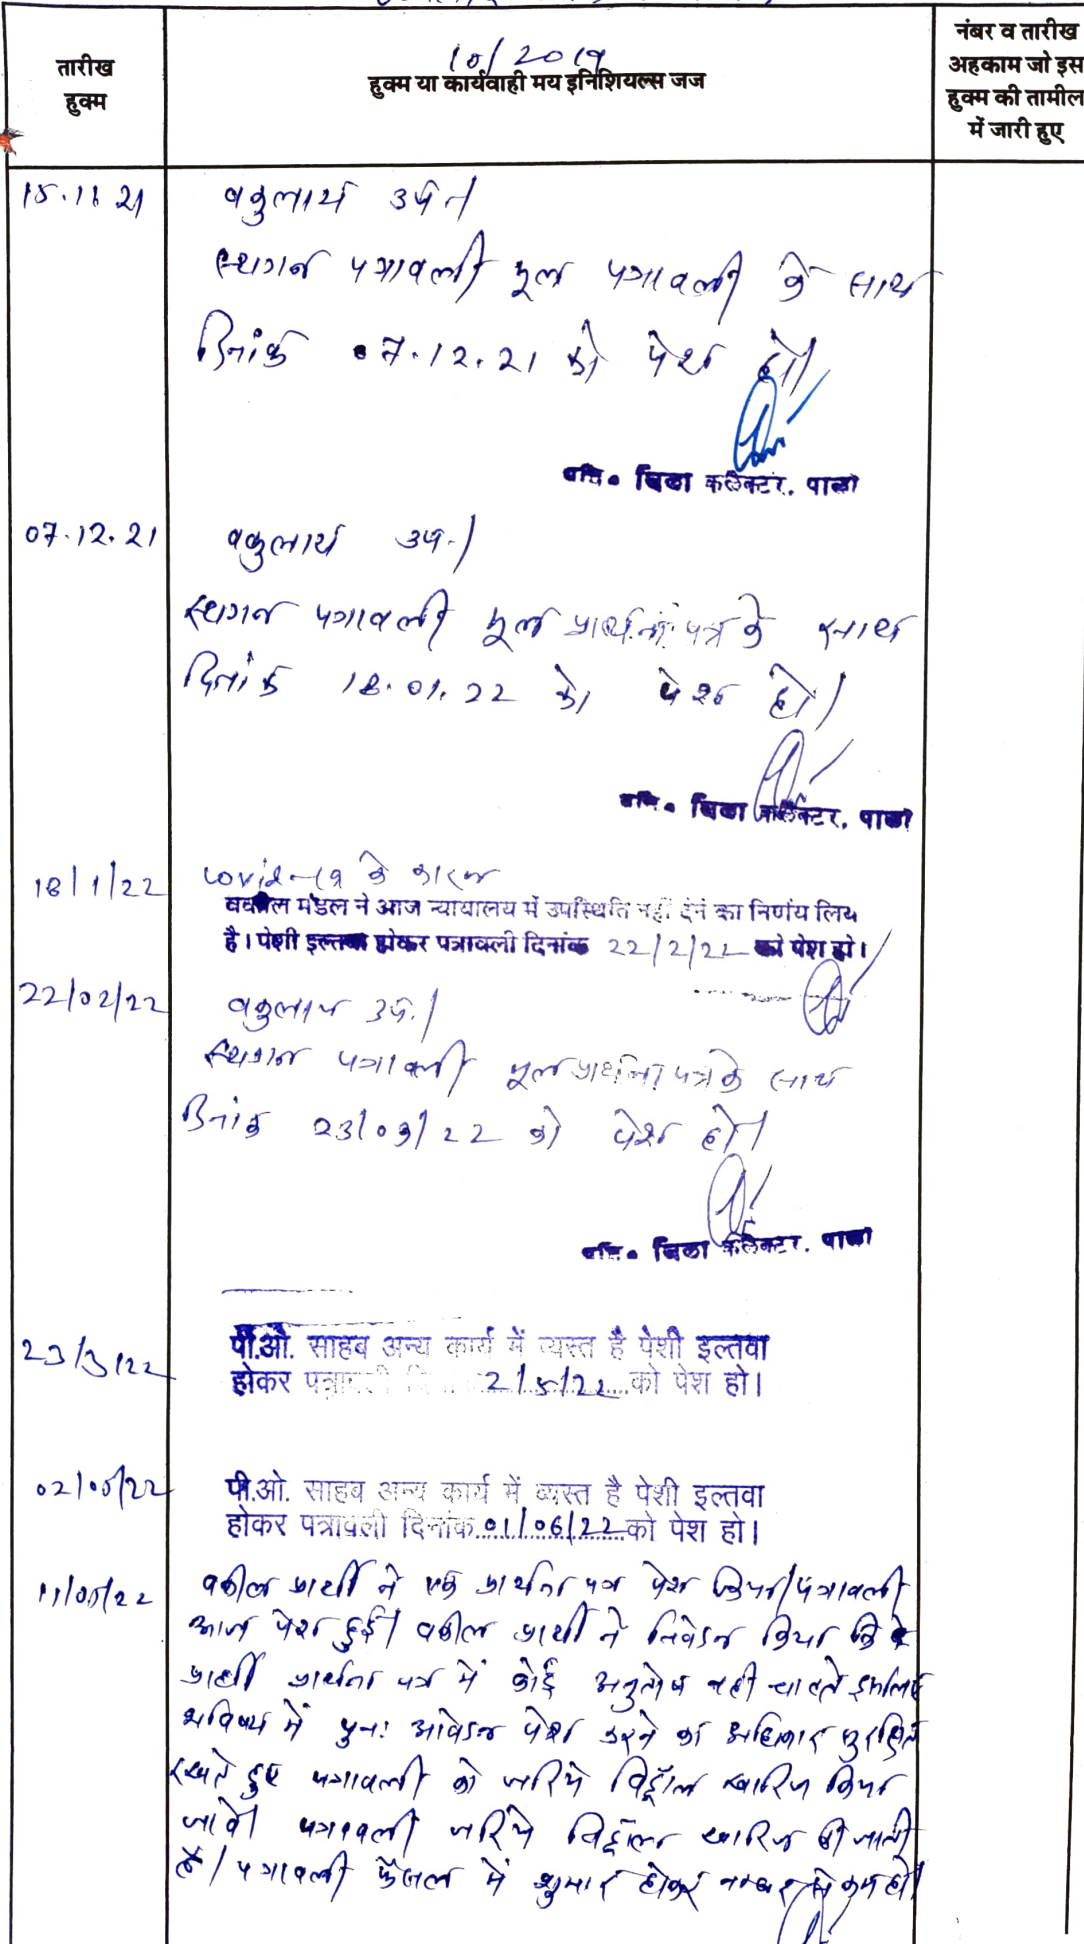 10/2019
तारीख
हुक्म
हुक्म या कार्यवाही मय इनिशियल्स जज
नंबर व तारीख
अहकाम जो इस
हुक्म की तामील
में जारी हुए
15.11.21
वकुलाय उप.।
स्थगन पत्रावली मूल पत्रावली के साथ
दिनांक 07.12.21 को पेश हो।
अति. जिला कलेक्टर, पाली
07.12.21
वकुलाय उप.।
स्थगन पत्रावली मूल प्रार्थना पत्र के साथ
दिनांक 18.01.22 को पेश हो।
अति. जिला कलेक्टर, पाली
18/1/22
covid-19 के कारण
वकील मंडल ने आज न्यायालय में उपस्थिति नहीं देने का निर्णय लिय
है। पेशी इल्तवा होकर पत्रावली दिनांक 22/2/22 को पेश हो।
22/02/22
वकुलाय उप.।
स्थगन पत्रावली मूल प्रार्थना पत्र के साथ
दिनांक 23/03/22 को पेश हो।
अति. जिला कलेक्टर, पाली
23/3/22
पी.ओ. साहब अन्य कार्य में व्यस्त है पेशी इल्तवा
होकर पत्रावली दि 2/5/22 को पेश हो।
02/05/22
पी.ओ. साहब अन्य कार्य में व्यस्त है पेशी इल्तवा
होकर पत्रावली दिनांक 01/06/22 को पेश हो।
11/05/22
वकील प्रार्थी ने एक प्रार्थना पत्र पेश किया। पत्रावली
आज पेश हुई। वकील प्रार्थी ने निवेदन किया कि वे
प्रार्थी प्रार्थना पत्र में कोई अनुतोष नही चाहते इसलिए
भविष्य में पुनः आवेदन पेश करने का अधिकार सुरक्षित
रखते हुए पत्रावली को जरिये विड्रॉल खारिज किया
जावे। पत्रावली जरिये विड्रॉल खारिज की जाती
है। पत्रावली फैसल में शुमार होकर नम्बर से कम हो।